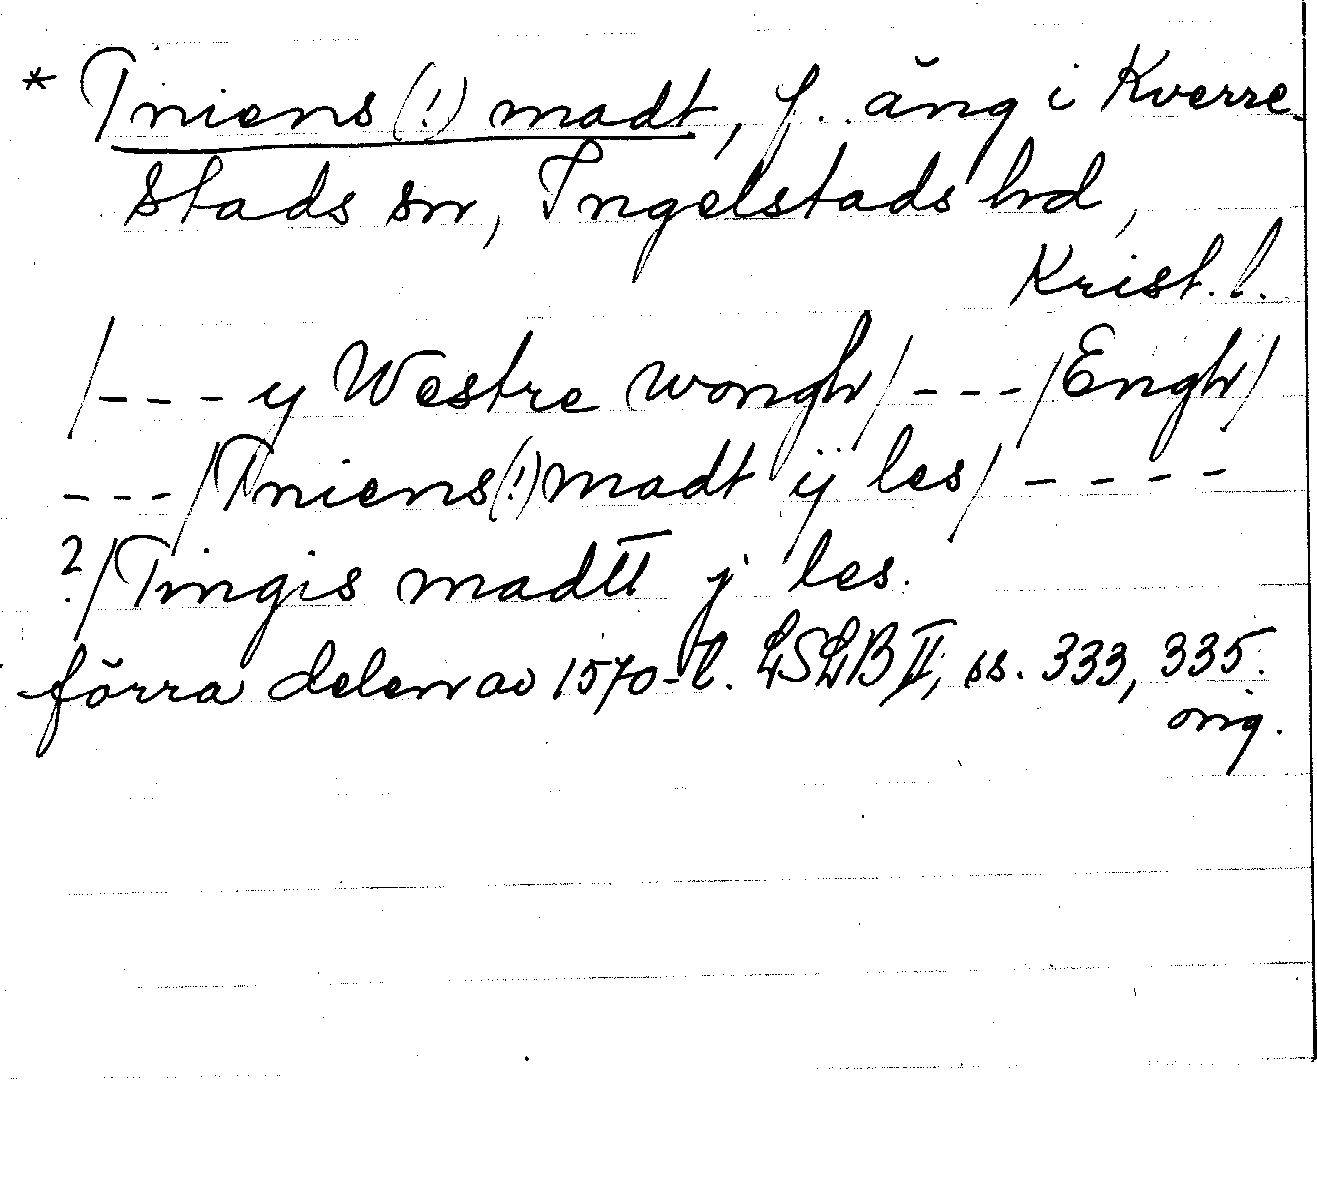 * Tniens (!) madt, f. äng i Kverre-
stads sn, Ingelstads hd,
Krist. l.
/--- y Westre wongh/ ---/Engh/
---/Tniens(!) madt ÿ les/ ----
?/Tingis madtt j les.
förra delen av 1570-t. LSLB II, ss. 333, 335.
orig.